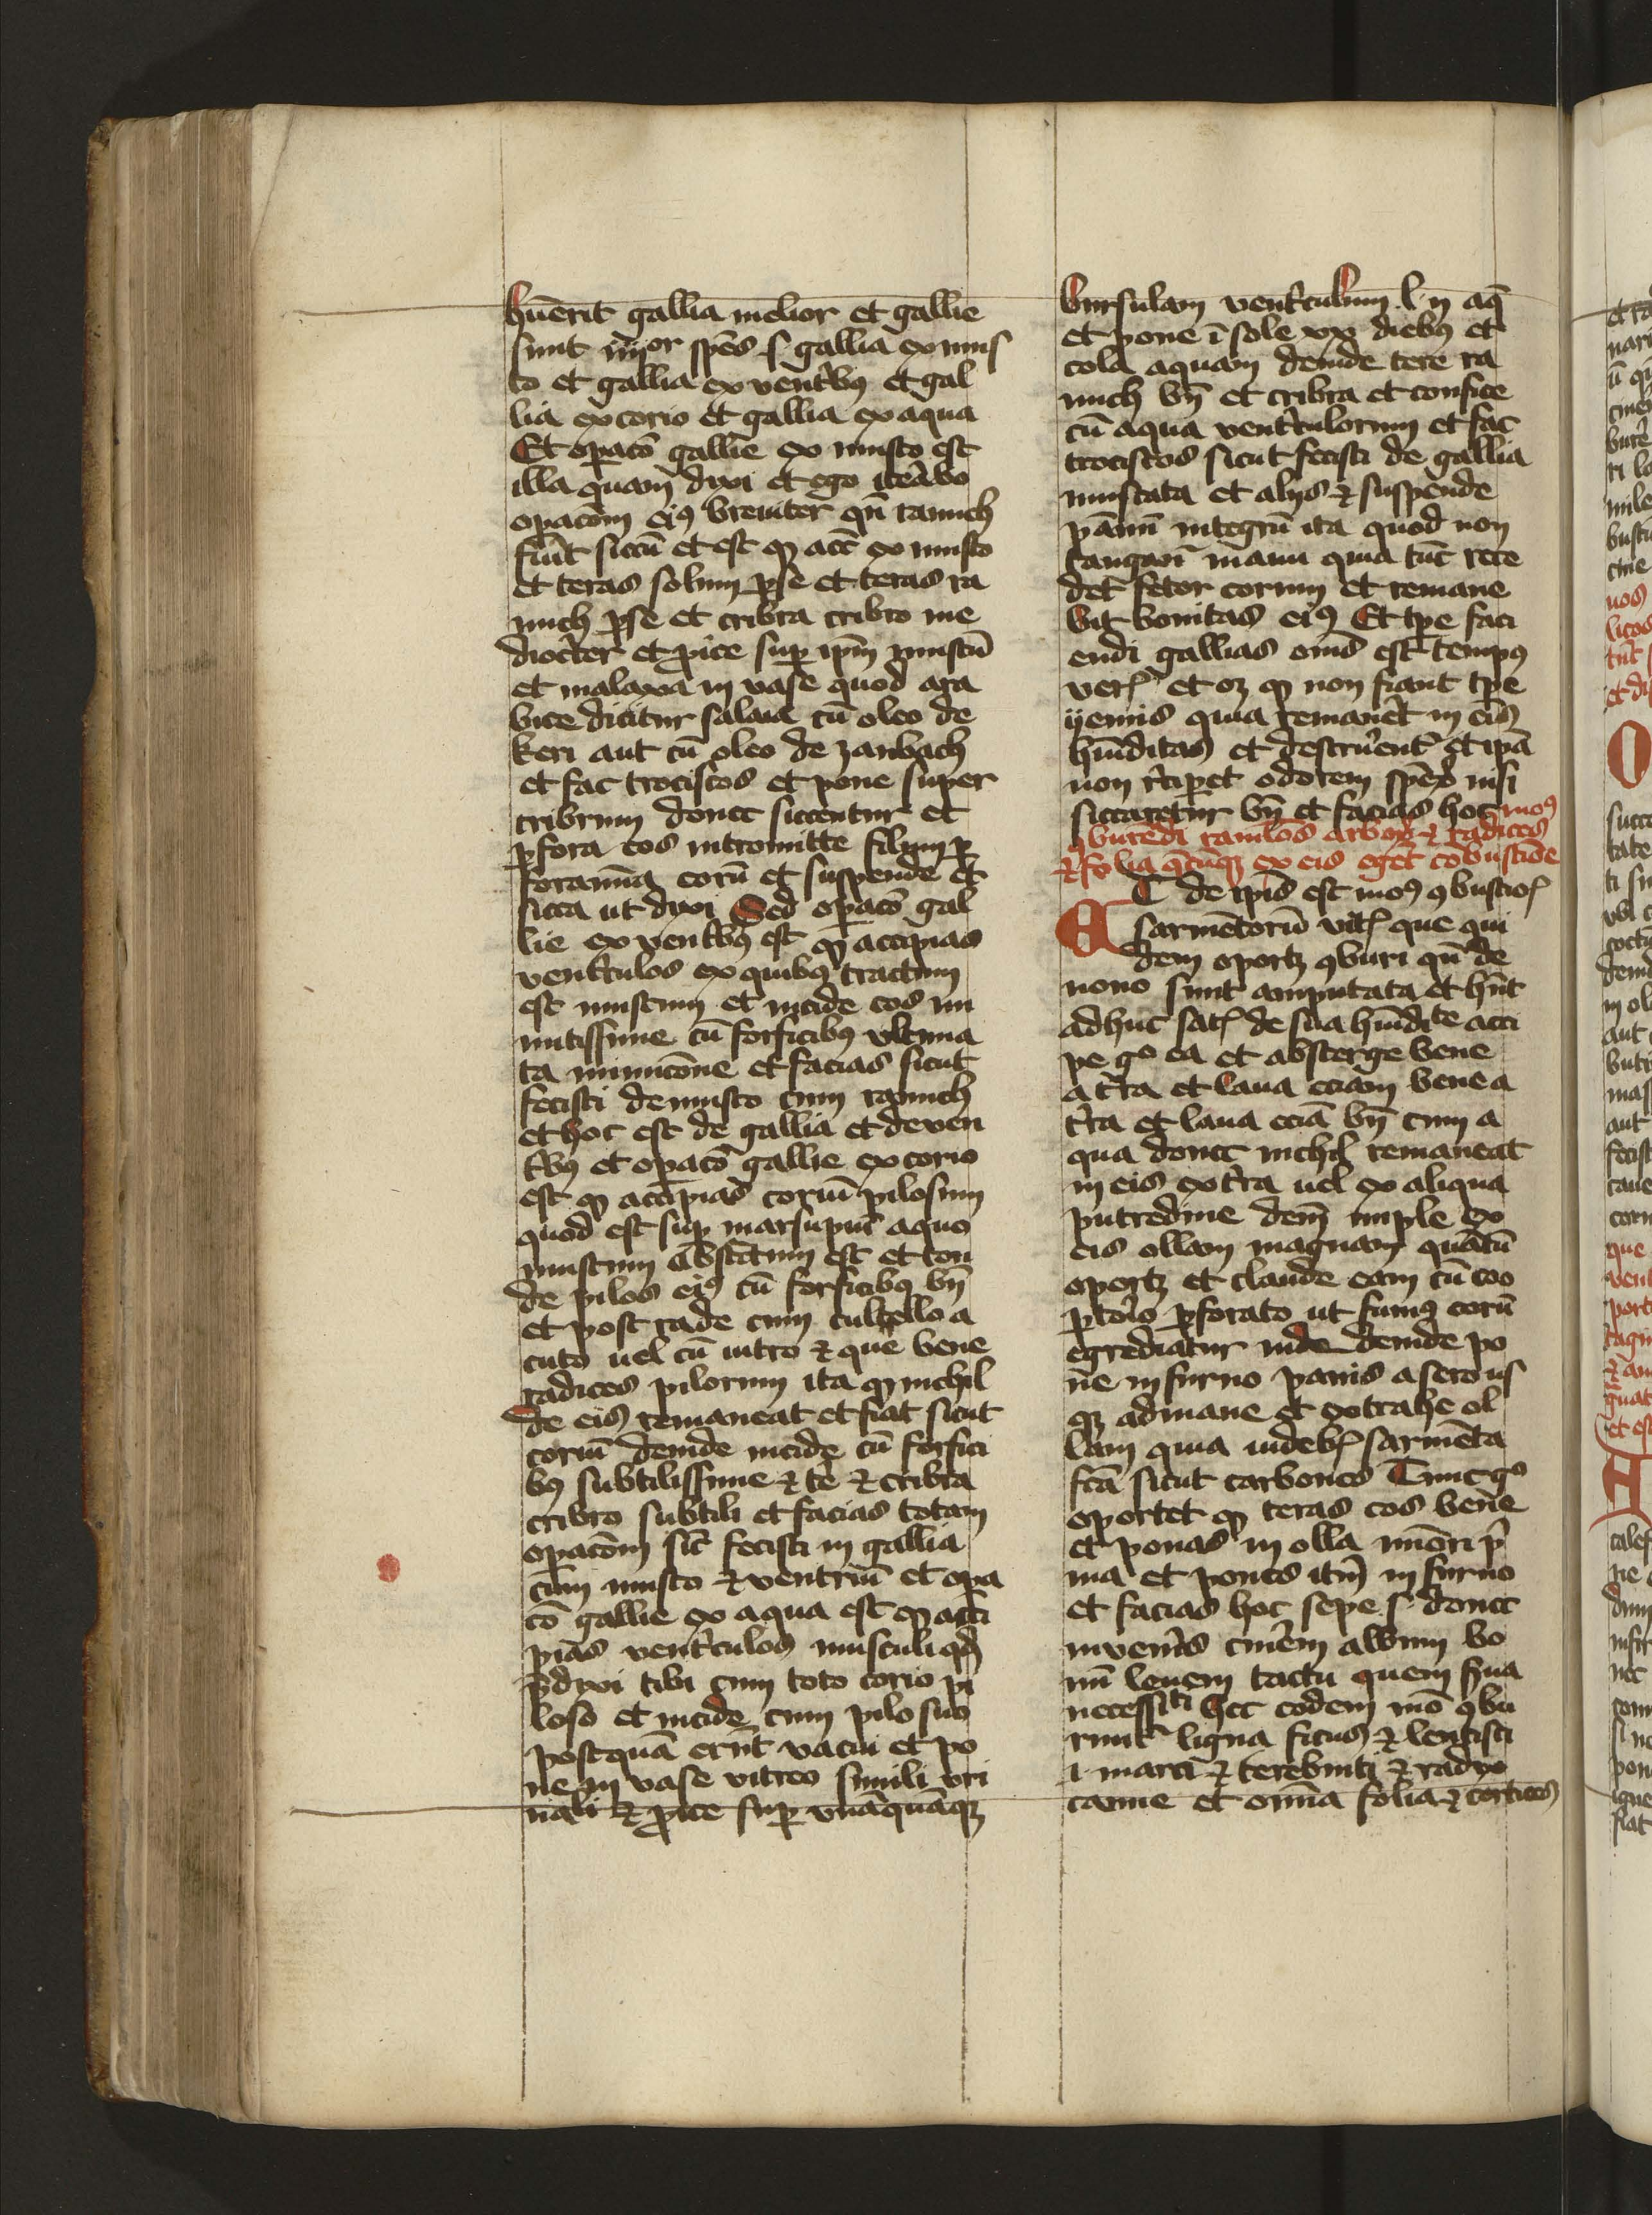 buerit gallia melior et gallie
sunt iiijor spēs .s. gallia ex mus
to et gallia ex ventͥbꝰ et gal
lia ex corio et gallia ex aqua
Et opaco gallie ex musto est
illa quam dixi et ego iteͣbo
opacōm eiꝰ breuiter qn̄ ramich
fiūt siccū et est ꝙ acc̄ ex musto
et teras solum ꝑ se et teras ra
mich ꝑ se et cribra cribro me
diocͥter et ꝓice suꝑ ip̄m mustū
et malaxa in vase quod ara
bice dicitur salaia cū oleo de
keri aut cū oleo de zanbach
et fac trociscos et pone super
cribrum donec siccentur et
ꝑfora eos intromitte filum ꝑ
foramīa eorū et suspende et
sicca ut dixi Sed opacō gal
lie ex ventͥbꝰ est ꝙ accipias
ventͥculos ex quibꝰ tractum
est mustum et incide eos mi
nutissime cū forficibꝰ vltima
ta minucōne et facias sicut
fecisti de musto cum ramich
et hoc est de gallia et de ven
tͥbꝰ et opacō gallie ex corio
est ꝙ accipias coriū pilosum
quod est suꝑ marsupiū a quo
mustum abstctum est et ton
de pilos eiꝰ cū forficibꝰ bn̄
et post rade cum cultello a
cuto uel cū uitro ⁊ que bene
radices pilorum ita ꝙ nichil
de eis remaneat et fiat sicut
coriū deinde incide cū forfici
bꝰ subtilissime ⁊ tͤe ⁊ cribra
cribro subtili et facias totam
opacōm sic̄ fecisti in gallia
cum musto ⁊ ventriū et opa
cō gallie ex aqua est ꝙ acci
pias ventͥculos musculi qd̄
p̄dixi tibi cum toto corio pi
loso et incide cum pilo suo
postquā erūt vacui et po
ne in vase vitreo simili vri
nali et ꝓice suꝑ vnāquāqꝫ
bursulam ventͥculum l ij aq̄
et pone ī sole xx diebꝰ et
cola aquam deinde tere ra
mich bn̄ et cribra et confice
cū aqua ventͥculorum et fac
trociscos sicut fecisti de gallia
muscata et alijs ⁊ suspende
pānū integrū ita quod non
tangant̄ manu quia tūc rece
det fetor eorum et remane
bit bonitas eiꝰ Et tp̄e faci
endi gallias om̄s est tempꝰ
verꝭ et oꝫ ꝙ non fiant tp̄e
yemis quia remanet in eis
hūiditas et destrͥuent̄ et ip̄a
non rͥcipet odorem spēꝝ nisi
siccaretur bn̄ et facias hoc moꝰ
ꝯburēdi ramulos arboꝝ ⁊ radices
⁊ folia qͥcūqꝫ ex eis eget cōbustiōe
T de ip̄is est moꝰ ꝯbustiōꝭ
A sarmētorū vitꝭ que qui
dem oportꝫ ꝯburi qn̄ de
nouo sunt amputata et hn̄t
adhuc satꝭ de sua hūidite acci
pe gͦ ea et absterge bene
a tͥra et laua eciam bene a
tͥra et laua eciā bn̄ cum a
qua donec nichil remaneat
in eis ex tͥra uel ex aliqua
putredine dem̄ imple ex
eis ollam magnam quātū
oportꝫ et claude eam cū coo
ꝑtoͥo ꝑforato ut fumꝰ eorū
egrediatur inde deinde po
ne in furno panis a sero us
qꝫ ad mane et extrahe ol
lam quia uidebꝭ sarmēta
fc̄a sicut carbones Tunc gͦ
oportet ꝙ teras eos bene
et ponas in olla mīori pͥ
ma et pones itm̄ in furno
et facias hoc sepe .s. donec
inveniͣs cinerem album bo
nū leuem tactu quem sͥua
necessiti hec eodem mō ꝯbu
runt̄ ligna ficus ⁊ lentisci
.i. marci ⁊ terebinti ⁊ radix
canne et om̄ia folia ⁊ cortices